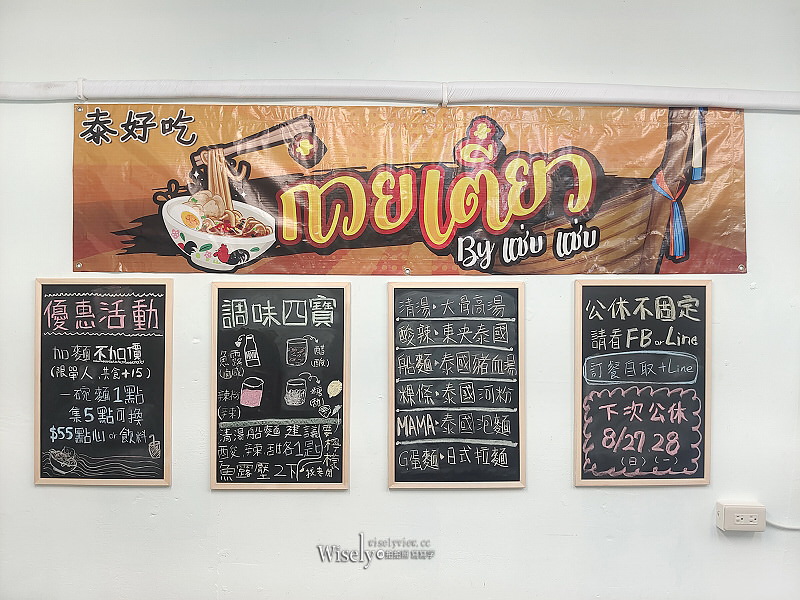 泰好吃
ก๋วยเตี๋ยว
By แซ่บ แซ่บ
優惠活動
加麵不加價
(限單人 共食+15)
一碗麵1點
集5點可換
$55點心or飲料
調味四寶
魚露
(鹹)
醋
(酸)
辣粉
(辣)
糖
清湯船麵建議
酸辣甜各1匙
魚露壓2下
清湯·大骨高湯
酸辣·東央泰國
船麵·泰國豬血湯
粿條·泰國河粉
MAMA·泰國泡麵
G蛋麵·日式拉麵
公休不固定
請看FB or Line
訂餐自取+Line
下次公休
8/27.28
(日)(一)
Wisely
wiselyview.cc